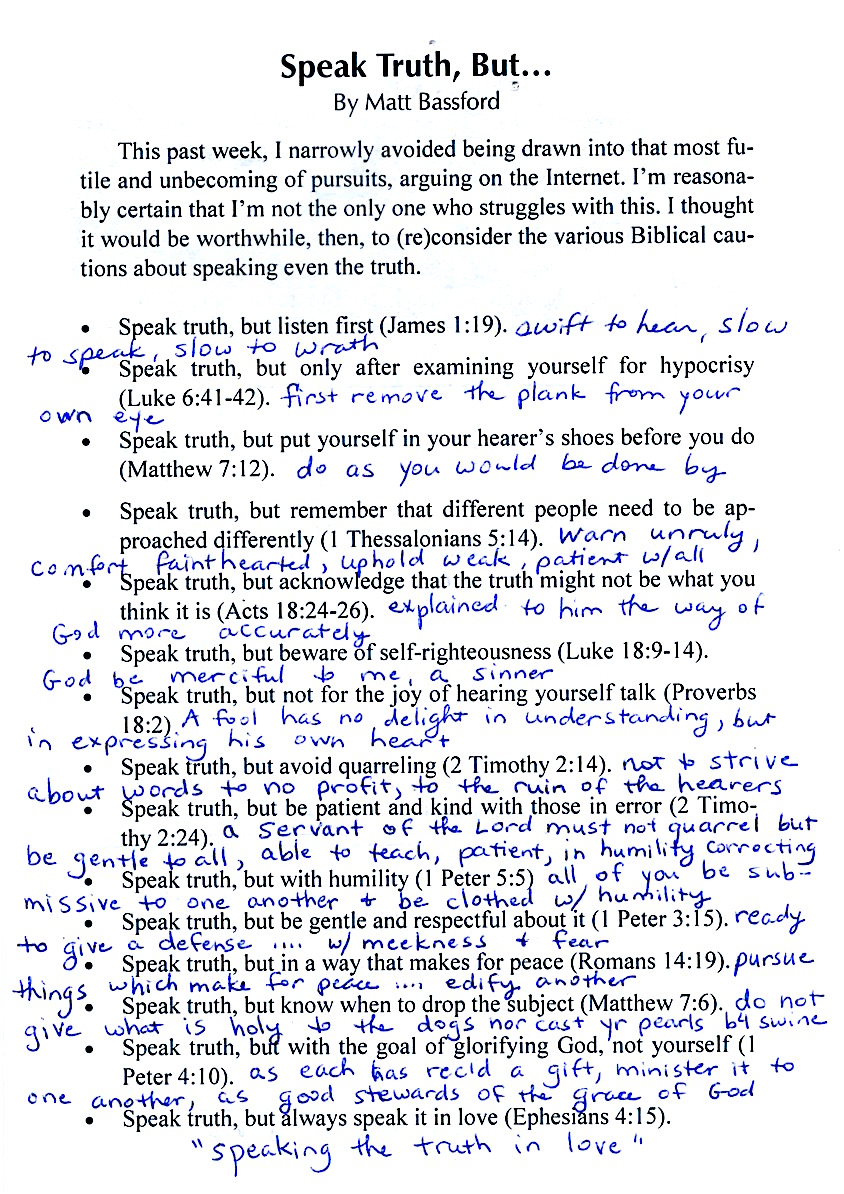 Speak Truth, But...
By Matt Bassford
This past week, I narrowly avoided being drawn into that most fu-
tile and unbecoming of pursuits, arguing on the Internet. I'm reasona-
bly certain that I'm not the only one who struggles with this. I thought
it would be worthwhile, then, to (re)consider the various Biblical cau-
tions about speaking even the truth.
• Speak truth, but listen first (James 1:19). swift to hear, slow
to speak, slow to wrath
• Speak truth, but only after examining yourself for hypocrisy
(Luke 6:41-42). first remove the plank from your
own eye
• Speak truth, but put yourself in your hearer's shoes before you do
(Matthew 7:12). do as you would be done by
• Speak truth, but remember that different people need to be ap-
proached differently (1 Thessalonians 5:14). Warn unruly,
comfort fainthearted, uphold weak, patient w/all
• Speak truth, but acknowledge that the truth might not be what you
think it is (Acts 18:24-26). explained to him the way of
God more accurately
• Speak truth, but beware of self-righteousness (Luke 18:9-14).
God be merciful to me, a sinner
• Speak truth, but not for the joy of hearing yourself talk (Proverbs
18:2) A fool has no delight in understanding, but
in expressing his own heart
• Speak truth, but avoid quarreling (2 Timothy 2:14). not to strive
about words to no profit, to the ruin of the hearers
• Speak truth, but be patient and kind with those in error (2 Timo-
thy 2:24). a servant of the Lord must not quarrel but
be gentle to all, able to teach, patient, in humility correcting
• Speak truth, but with humility (1 Peter 5:5) all of you be sub-
missive to one another + be clothed w/ humility
• Speak truth, but be gentle and respectful about it (1 Peter 3:15). ready
to give a defense .... w/ meekness + fear
• Speak truth, but in a way that makes for peace (Romans 14:19). pursue
things which make for peace .... edify another
• Speak truth, but know when to drop the subject (Matthew 7:6). do not
give what is holy to the dogs nor cast yr pearls b4 swine
• Speak truth, but with the goal of glorifying God, not yourself (1
Peter 4:10). as each has rec'd a gift, minister it to
one another, as good stewards of the grace of God
• Speak truth, but always speak it in love (Ephesians 4:15).
"speaking the truth in love"